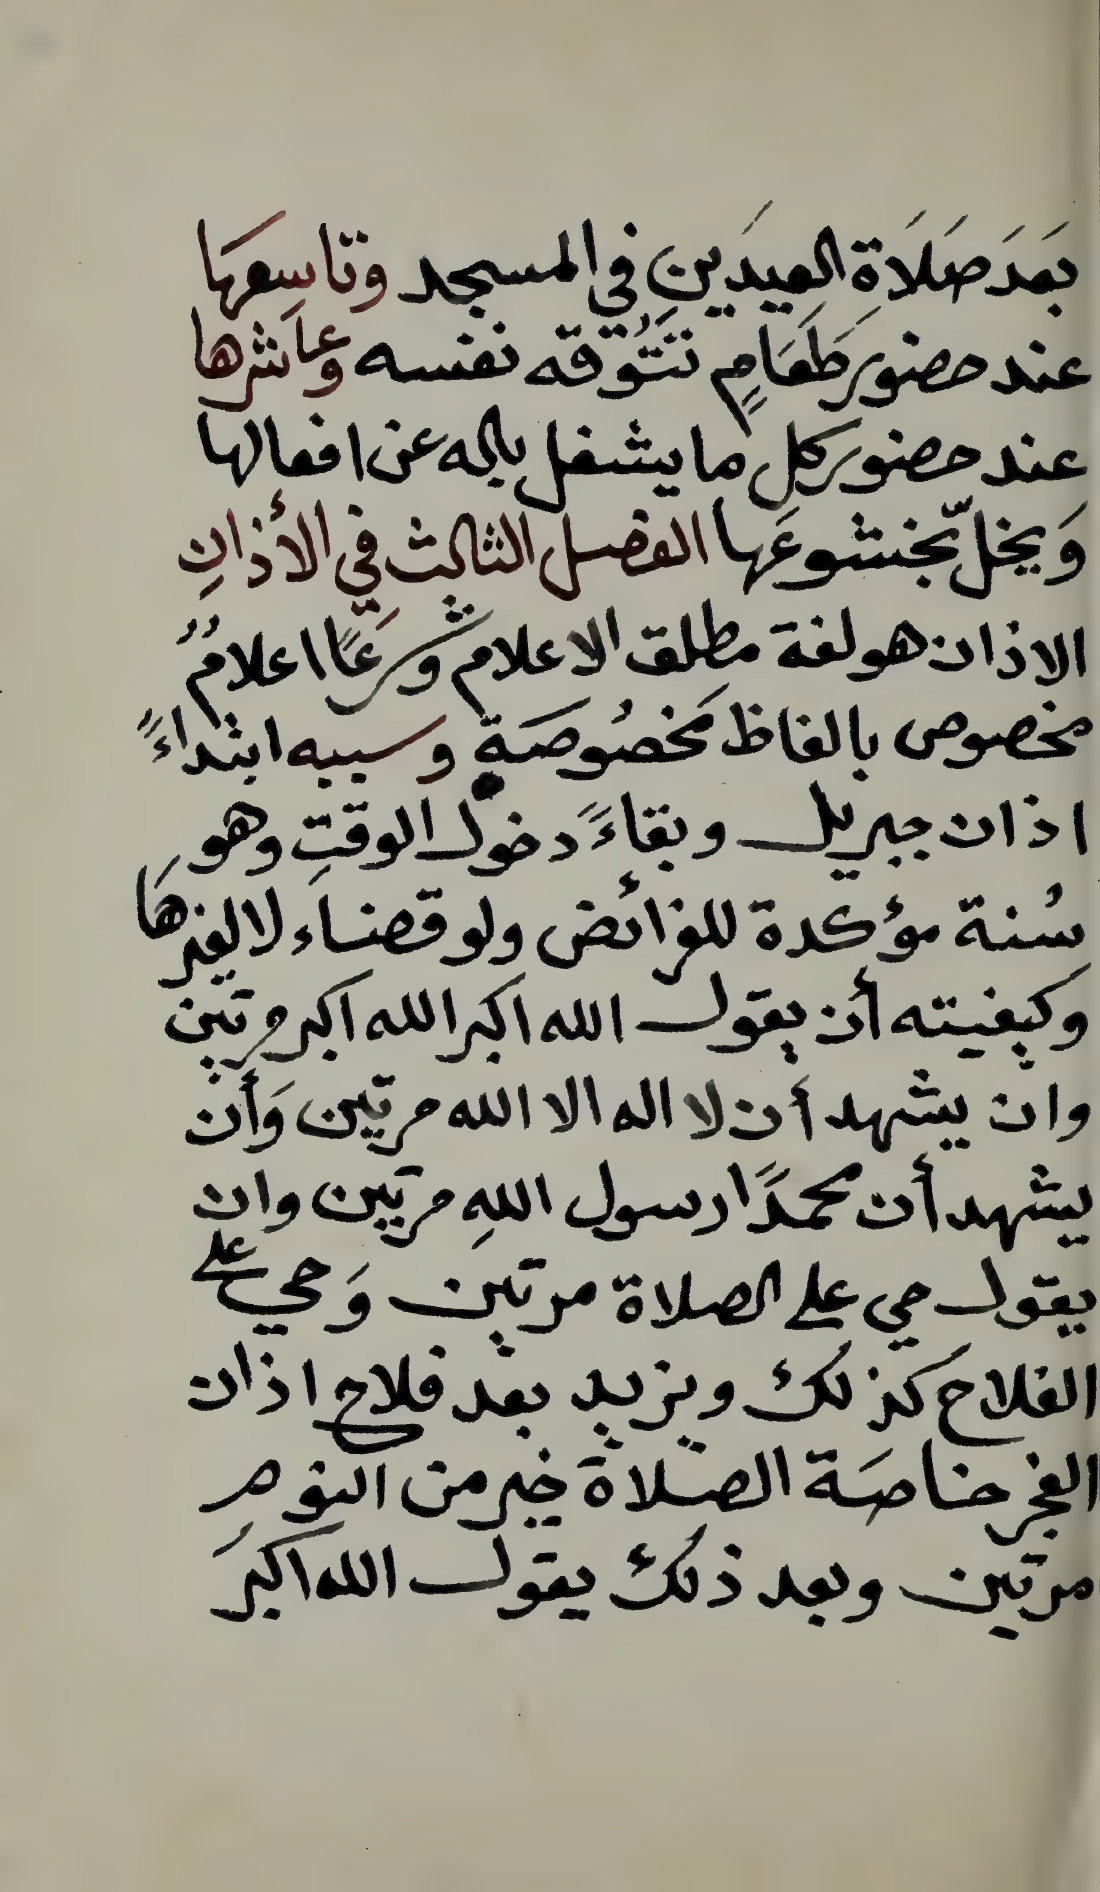 بَعَدَ صَلَاة العيدَينِ في المسجد وتاسعهَا
عند حضور طَعَامٍ تَتُوقه نفسه وعاشرها
عند حضور كل ما يشغل باله عن افعالها
وَيخلّ بخشوعَها الفصل الثالث في الأذانِ
الاذان هو لغة مطلق الاعلام وشرعًا اعلامٌ
مخصوص بالفاظ مَخصُوصَةٍ وسببه ابتداءً
اذان جبريل وبقاءً دخول الوقتِ وهو
سُنة مؤكدة للفرائض ولو قضاء لا لغيرهَا
وكيفيته أن يقول الله اكبر الله اكبر مرتين
وان يشهد أن لا اله الا الله مرتين وَأن
يشهد أن محمدًا رسول اللهِ مرتين وان
يقول حي على الصلاة مرتين وَحي على
الفلاح كذلك ويزيد بعد فلاح اذان
الفجر خاصَة الصّلاة خير من النوم
مرتين وبعد ذلك يقول الله اكبرَ